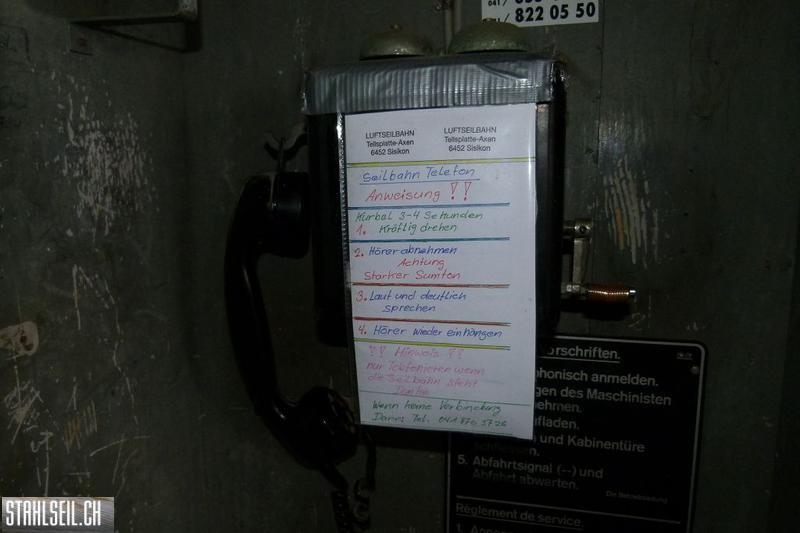 822 05 50
LUFTSEILBAHN
Tellsplatte-Axen
6452 Sisikon
LUFTSEILBAHN
Tellsplatte-Axen
6452 Sisikon
Seilbahn Telefon
Anweisung !!
Kurbel 3-4 Sekunden
1. Kräftig drehen
2. Hörer abnehmen
Achtung
Starker Sumton
3. Laut und deutlich
sprechen
4. Hörer wieder einhängen
!! Hinweis !!
nur Telefonieren wenn
die Seilbahn steht
Danke
Wenn keine Verbindung
Dann: Tel. 041 870
orschriften.
phonisch anmelden.
gen des Maschinisten
ehmen.
ufladen.
und Kabinentüre
schliessen.
5. Abfahrtsignal (--) und
Abfahrt abwarten.
Die Betriebsleitung
Règlement de service.
STAHLSEIL.CH